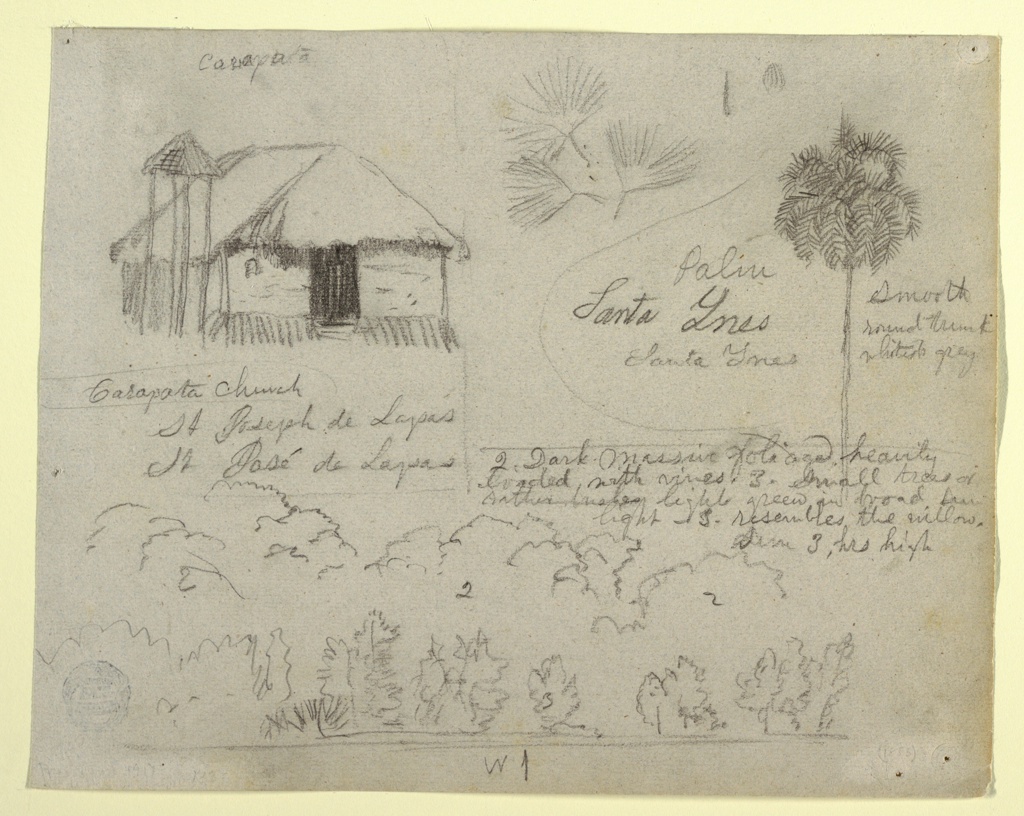 Carapata
Palm
Santa Ynes
Santa Ynes
Smooth
round trunk
whitish grey
Carapata Church
St Joseph de Lapas
St José de Lapas
2. Dark massive foliage, heavily
loaded, with vines. 3. Small trees or
rather bushes light green in broad sun
light - 3. resembles the willow.
Sun 3, hrs high
2
2
2
3
W 1